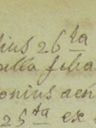 lius 26 ta
nulla filia
onius aen
25 ta ex